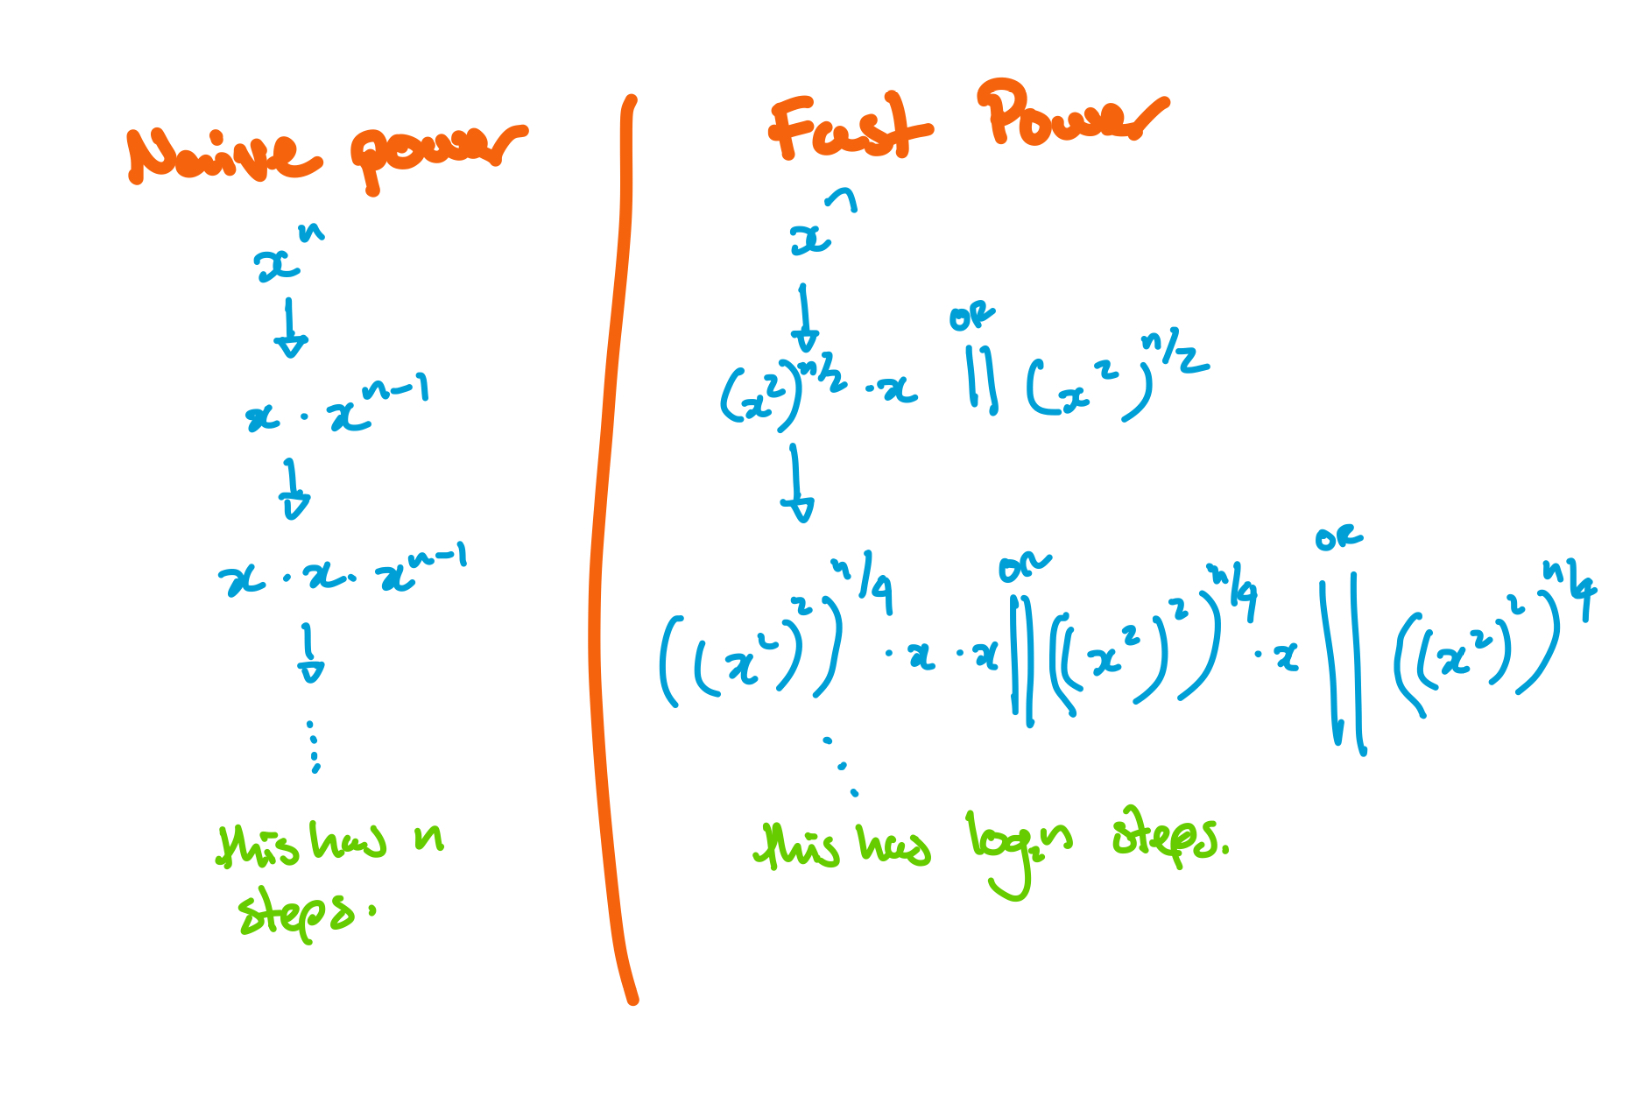 Naive power
x^n
x · x^{n-1}
x · x · x^{n-1}
this has n
steps.
Fast Power
x^n
(x^2)^{n/2} · x || OR (x^2)^{n/2}
((x^2)^2)^{n/4} · x · x || OR ((x^2)^2)^{n/4} · x || OR ((x^2)^2)^{n/4}
this has log_2 n steps.